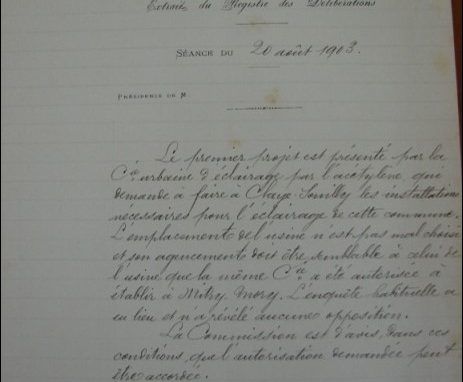 Extrait du Registre des Délibérations
SÉANCE DU 20 août 1903.
PRÉSIDENCE DE M.
Le premier projet est présenté par la
Cie urbaine d'éclairage par l'acétylène qui
demande à faire à Claye-Souilly les installations
nécessaires pour l'éclairage de cette commune.
L'emplacement de l'usine n'est pas mal choisi
et son agencement doit être semblable à celui de
l'usine que la même Cie a été autorisée à
établir à Mitry-Mory. L'enquête habituelle a
eu lieu et n'a révélé aucune opposition.
La Commission est d'avis, dans ces
conditions, que l'autorisation demandée peut
être accordée.